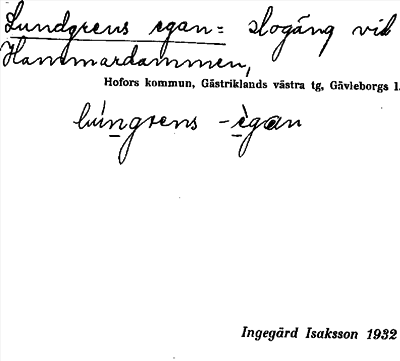 Lundgrens egan = slogäng vid
Hammardammen,
Hofors kommun, Gästriklands västra tg, Gävleborgs l.
lúngrens - ègan
Ingegärd Isaksson 1932